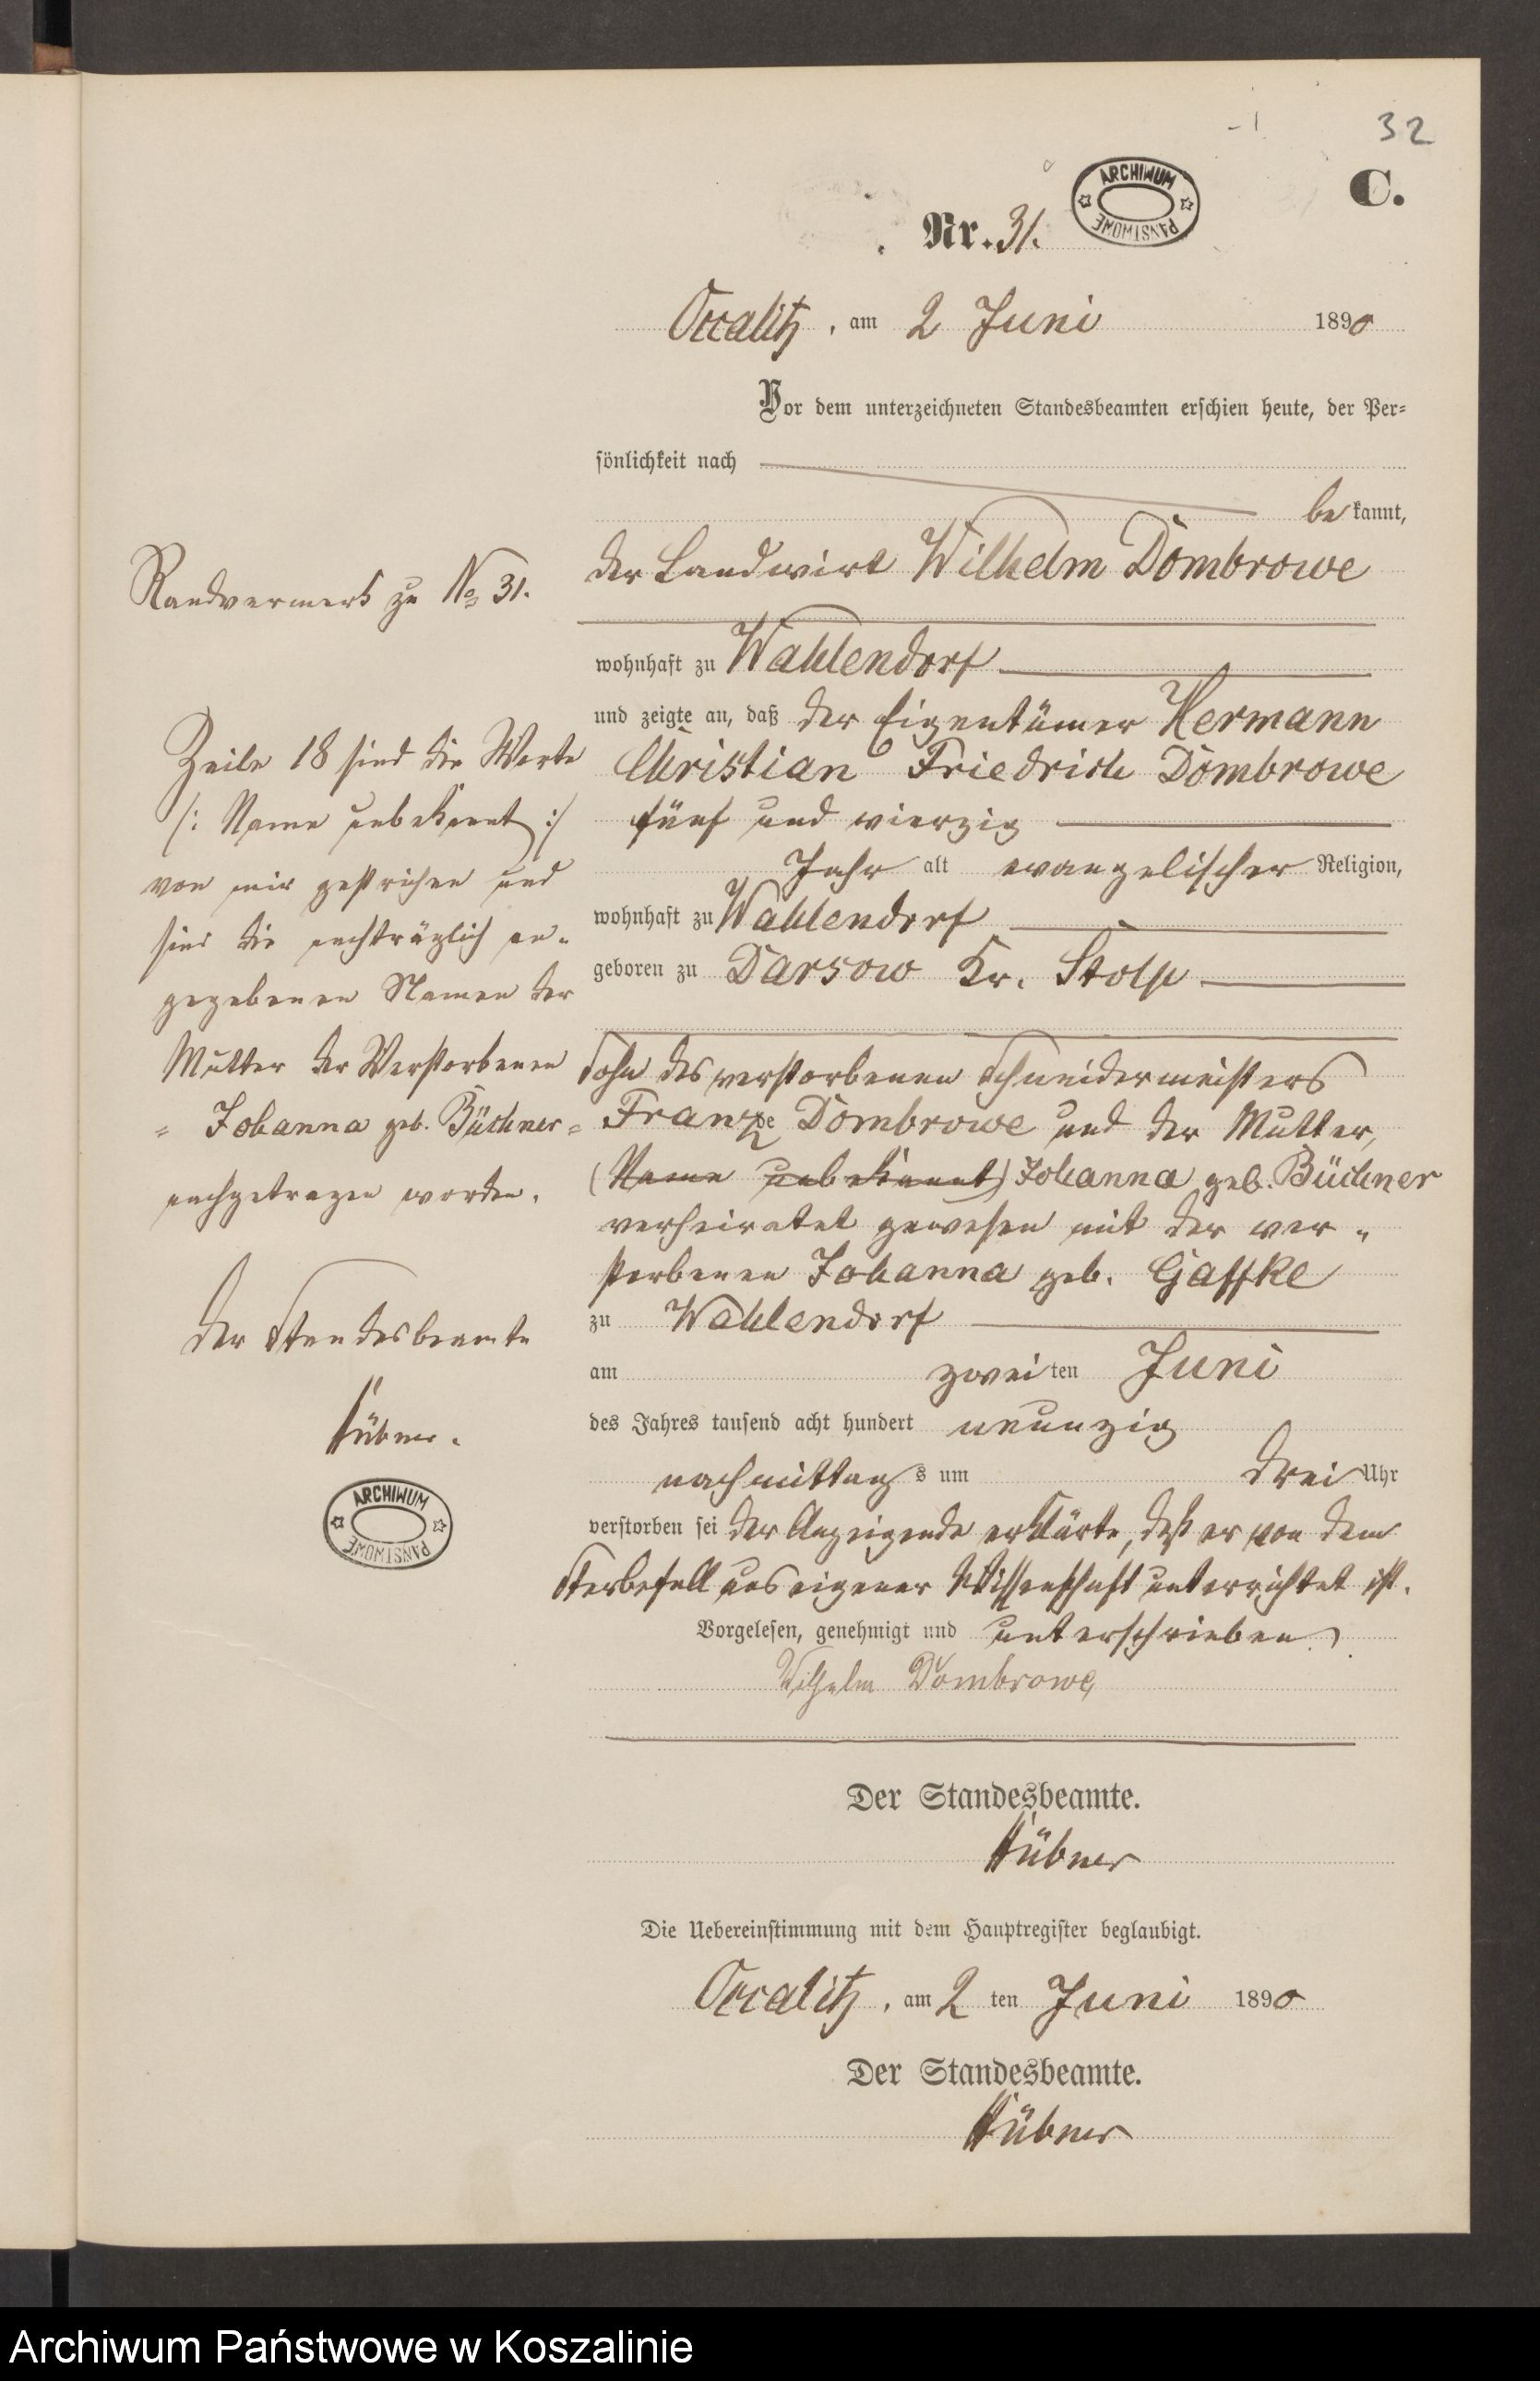 32
C.
Nr. 31.
ARCHIWUM PAŃSTWOWE
Occalitz, am 2 Juni 1890
Vor dem unterzeichneten Standesbeamten erschien heute, der Per-
sönlichkeit nach
bekannt,
der Landwirt Wilhelm Dombrowe
wohnhaft zu Wahlendorf
und zeigte an, daß der Eigentümer Hermann
Christian Friedrich Dombrowe
fünf und vierzig
Jahr alt evangelischer Religion,
wohnhaft zu Wahlendorf
geboren zu Darsow Kr. Stolp
Sohn des verstorbenen Schneidermeisters
Dombrowe und der Mutter,
(Name unbekannt) Johanna geb. Büchner
verheiratet gewesen mit der ver-
storbenen Johanna geb. Gaffke
zu Wahlendorf
am zweiten Juni
des Jahres tausend acht hundert neunzig
nachmittags um drei Uhr
verstorben sei der Anzeigende erklärte, daß er von dem
Sterbefall aus eigener Wissenschaft unterrichtet ist.
Vorgelesen, genehmigt und unterschrieben
Wilhelm Dombrowe
Der Standesbeamte.
Hübner
Die Uebereinstimmung mit dem Hauptregister beglaubigt.
Occalitz, am 2 ten Juni 1890
Der Standesbeamte.
Hübner
Randvermerk zu No 31.
Zeile 18 sind die Worte
/: Name unbekannt :/
von mir gestrichen und
sind die nachträglich an-
gegebenen Namen der
Mutter der Verstorbenen
= Johanna geb. Büchner =
nachgetragen worden.
Der Standesbeamte
Hübner.
ARCHIWUM PAŃSTWOWE
Archiwum Państwowe w Koszalinie